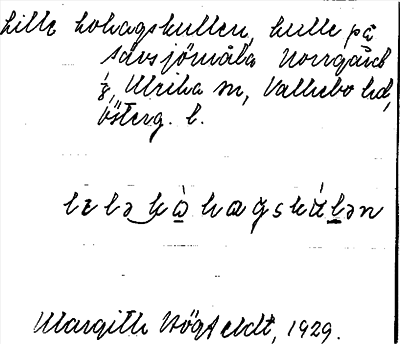 Lille kohagskullen, kulle på
Sävsjömåla Norrgård
1/8, Ulrika sn, Valkebo hd,
Österg. l.
lɩlə kὰhagskúlən
Margith Högfeldt, 1929.